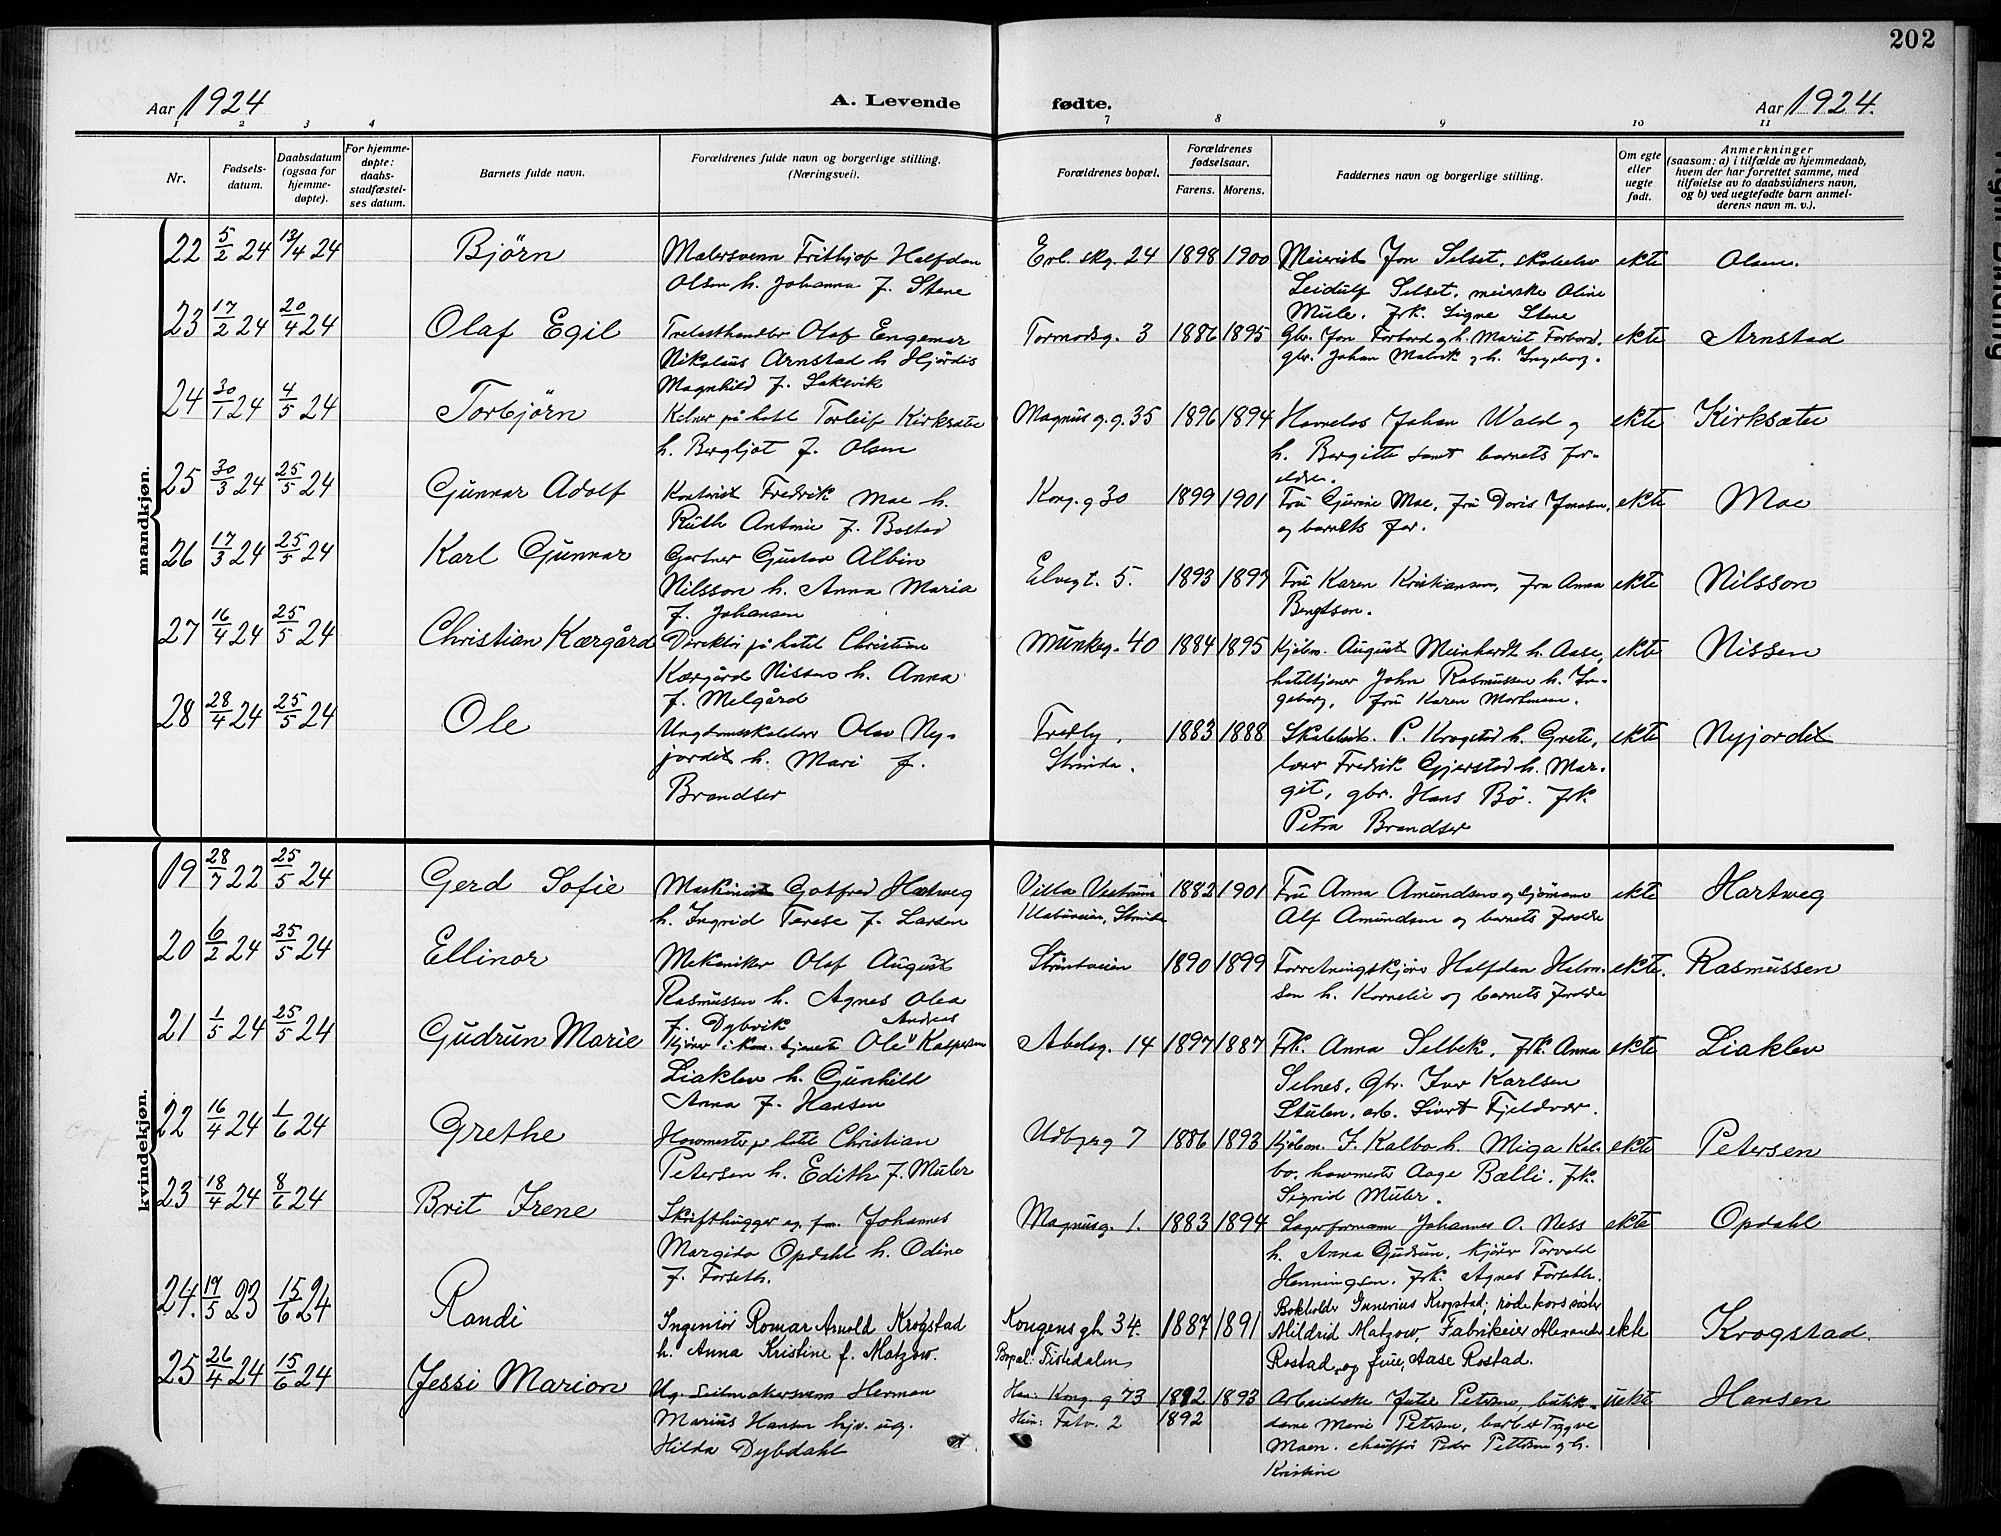 202
Aar 1924
A. Levende
fødte.
Aar 1924.
1 2 3 4 7 8 9 10 11
Nr.
Fødsels-
datum.
Daabsdatum
(ogsaa for
hjemme-
døpte).
For hjemme-
døpte:
daabs-
stadfæstel-
ses datum.
Barnets fulde navn.
Forældrenes fulde navn og borgerlige stilling.
(Næringsvei).
Forældrenes bopæl.
Forældrenes
fødselsaar.
Farens. Morens.
Faddernes navn og borgerlige stilling.
Om egte
eller
uegte
født.
Anmerkninger
(saasom: a) i tilfælde av hjemmedaab,
hvem der har forrettet samme, med
tilføielse av to daabsvidners navn,
og b) ved uegtefødte barn anmel-
derens navn m. v.).
mandkjøn.
22 5/2 24 13/4 24 Bjørn
Malersvenn Frithjof Halfdan
Olsen h. Johanna f. Stene
Erl. skg. 24 1898 1900
Meierist Jon Selset, skoleelev
Leidulf Selset, meierske Oline
Mule. frk. Signe Stene
ekte Olsen.
23 17/2 24 20/4 24 Olaf Egil
Trelasthandler Olaf Engemar
Nikolaus Arnstad h. Hjørdis
Magnhild f. Lakevik
Tormodsg. 3 1886 1895
Gbr. Jon Forbord og h. Marit Forbord,
gbr. Johan Malvik og h. Ingeborg.
ekte Arnstad
24 30/1 24 4/5 24 Torbjörn
Kelner på hotel Torleif Kirksæter
h. Bergljot f. Olsen
Magnus g.g. 35 1896 1894
Johan Wald og
h. Bergitte samt barnets for-
eldre.
ekte Kirksæter
25 30/3 24 25/5 24 Gunnar Adolf
Kontorist Fredrik Moe h.
Ruth Antonie f. Bostad
Kong. g 30 1899 1901
Fru Gurine Moe, fru Doris Jonasen,
og barnets far.
ekte Moe
26 17/3 24 25/5 24 Karl Gunnar
Gartner Gustav Albin
Nilsson h. Anna Maria
f. Johansen
Elvegt. 5. 1893 1897
Fru Karen Kristiansen, fru Anna
Bengtson.
ekte Nilsson
27 16/4 24 25/5 24 Christian Kærgård
Direktør på hotel Christian
Kærgård Nissen h. Anna
f. Melgård
Munkeg. 40 1884 1895
Kjøbm. August Meinhardt h. Aase,
hoteltjener John Rasmussen h. In-
geborg, fru Karen Mortensen.
ekte Nissen
28 28/4 24 25/5 24 Ole
Ungdomsskolelærer Olav Ny-
jordet h. Mari f.
Brandser
Fredly,
Strinda.
1883 1888
Skolebest. P. Krogstad h. Grete,
lærer Fredrik Gjerstad h. Mar-
git, gbr. Hans Bö. frk.
Petra Brandser
ekte Nyjordet
kvindekjøn.
19 28/7 22 25/5 24 Gerd Sofie
Maskinist Gotfred Hartweg
h. Ingrid Terese f. Larsen
Villa Vestrum
Klæbuveien, Strinda
1882 1901
Fru Anna Amundsen og sjømann
Alf Amundsen og barnets foreldre
ekte Hartweg
20 6/2 24 25/5 24 Ellinor
Mekaniker Olaf August
Rasmussen h. Agnes Olea
f. Dybvik
Strindveien 1890 1899
Forretningskjører Halfdan
h. Kornelie og barnets foreldre
ekte. Rasmussen
21 1/5 24 25/5 24 Gudrun Marie
Kjører i kom. tjeneste Ole Andreas Kaspersen
Liaklev h. Gunhild
Anna f. Hansen
Abelsg. 14 1897 1887
Frk. Anna Selbek, frk. Anna
Selnes, Gbr. Iver Karlsen
Stulen, arb. Sivert Fjeldvær.
ekte Liaklev
22 16/4 24 1/6 24 Grethe
Hovmester på hotel Christian
Petersen h. Edith f. Müler
Udbyeg 7 1886 1893
Kjøbm. F. Kalbo h. Miga Kal-
bo, hovmester Aage Bælli, frk.
Sigrid Müler.
ekte Petersen
23 18/4 24 8/6 24 Brit Irene
Skrifthugger og fm. Johannes
Margido Opdahl h. Odine
f. Forseth.
Magnusg. 1. 1883 1894
Lagerformann Johannes O. Ness
h. Anna Gudrun, kjører Torvald
Henningsen, frk. Agnes Forseth.
ekte Opdahl
24. 19/5 23 15/6 24 Randi
Ingeniör Romar Arnold Krogstad
h. Anna Kristine f. Matzow.
Kongens gt. 34.
Bopæl: Tistedalen
1887 1891
Bokholder Gunerius Krogstad; röde kors söster
Mildrid Matzow, Fabrikeier Alexander
Rostad, og frue, Aase Rostad.
ekte Krogstad.
25 26/4 24 15/6 24 Jessi Marion
Ug. Seilmakersvenn Herman
Marius Hansen hjv. ug.
Hilda Dybdahl
Han: Kong. g 73
Hun: 2
1892 1893
1892
Arbeiderske Julie Petersen, butik-
dame Marie Petersen, barber Trygve
Moen. chauffør Peder Pettersen og h.
Kristine
uekte Hansen